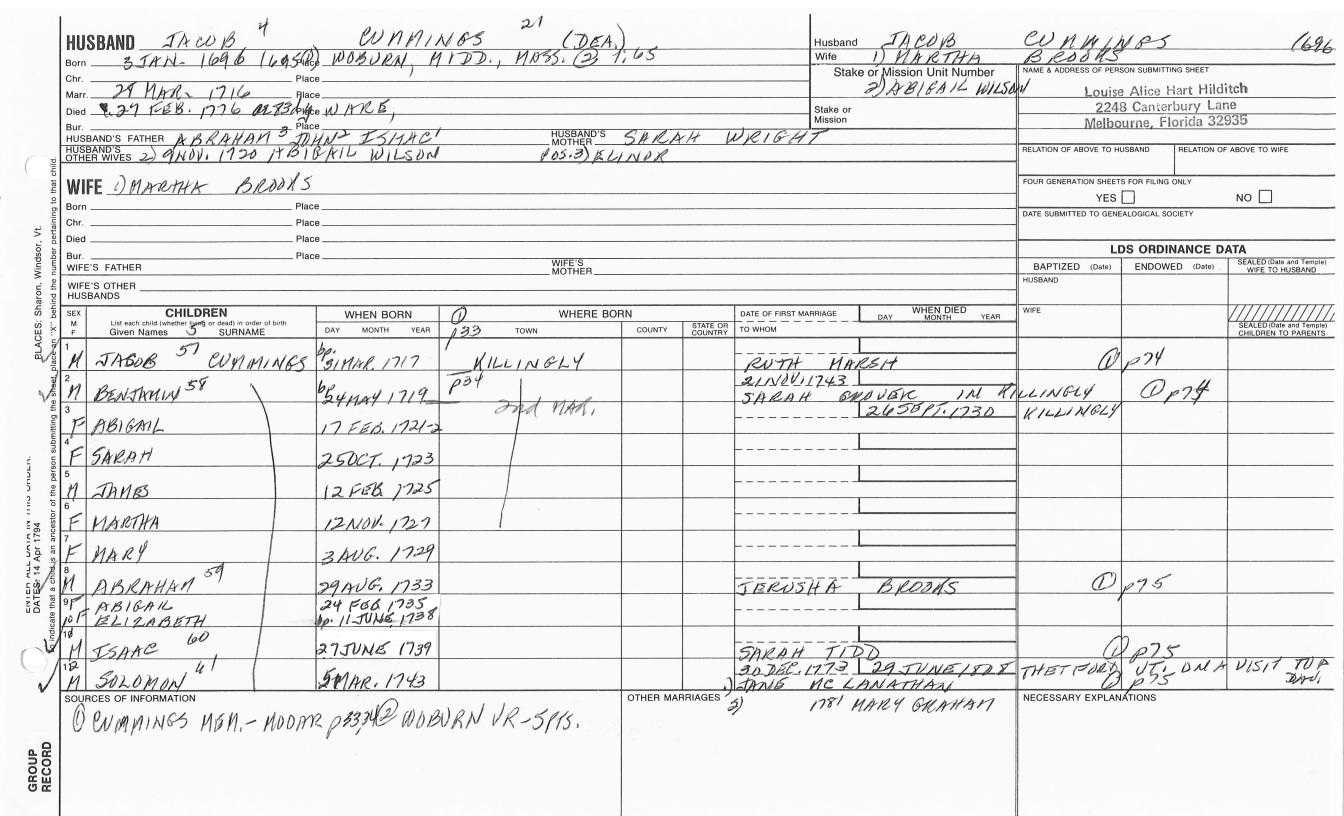 HUSBAND JACOB 4 CUMMINGS 21 (DEA.)
Born 3 JAN. 1696 Place WOBURN, MIDD., MASS. (2) 1:65
Chr. Place
Marr. 28 MAR. 1716 Place
Died 27 FEB. 1776 Place WARE,
Bur. Place
HUSBAND'S FATHER ABRAHAM 3 JOHN 2 ISAAC 1 HUSBAND'S MOTHER SARAH WRIGHT
HUSBAND'S OTHER WIVES 2) 9 NOV. 1720 ABIGAIL WILSON POS. 3) ELINOR
Husband JACOB CUMMINGS 1696
Wife 1) MARTHA BROOKS
Stake or Mission Unit Number
2) ABIGAIL WILSON
Stake or Mission
NAME & ADDRESS OF PERSON SUBMITTING SHEET
Louise Alice Hart Hilditch
2248 Canterbury Lane
Melbourne, Florida 32935
RELATION OF ABOVE TO HUSBAND RELATION OF ABOVE TO WIFE
FOUR GENERATION SHEETS FOR FILING ONLY
YES NO
DATE SUBMITTED TO GENEALOGICAL SOCIETY
WIFE 1) MARTHA BROOKS
Born Place
Chr. Place
Died Place
Bur. Place
WIFE'S FATHER WIFE'S MOTHER
WIFE'S OTHER HUSBANDS
LDS ORDINANCE DATA
BAPTIZED (Date) ENDOWED (Date) SEALED (Date and Temple) WIFE TO HUSBAND
HUSBAND
WIFE
SEALED (Date and Temple) CHILDREN TO PARENTS
SEX M F
CHILDREN
List each child (whether living or dead) in order of birth
Given Names 5 SURNAME
WHEN BORN
DAY MONTH YEAR
WHERE BORN
(1) p33 TOWN COUNTY STATE OR COUNTRY
DATE OF FIRST MARRIAGE
TO WHOM
WHEN DIED
DAY MONTH YEAR
1 M JACOB 57 CUMMINGS bp. 31 MAR. 1717 KILLINGLY RUTH MARSH (1) p74
2 M BENJAMIN 58 bp. 24 MAY 1719 p34 21 NOV. 1743 SARAH GROVER IN KILLINGLY (1) p74
2nd MAR.
3 F ABIGAIL 17 FEB. 1721-2 26 SEPT. 1730 KILLINGLY
4 F SARAH 25 OCT. 1723
5 M JAMES 12 FEB 1725
6 F MARTHA 12 NOV. 1727
7 F MARY 3 AUG. 1729
8 M ABRAHAM 59 29 AUG. 1733 JERUSHA BROOKS (1) p75
9 F ABIGAIL 24 FEB 1735
10 F ELIZABETH bp. 11 JUNE 1738
11 M ISAAC 60 27 JUNE 1739 SARAH TIDD (1) p75
12 M SOLOMON 61 5 MAR. 1743 30 DEC. 1773 29 JUNE 1808 THETFORD VT. ON A VISIT TO A DAU.
1) JANE MC LANATHAN (1) p75
2) 1781 MARY GRAHAM
SOURCES OF INFORMATION
(1) CUMMINGS MEM. - MOOAR p33,34 (2) WOBURN VR - SPTS.
OTHER MARRIAGES
NECESSARY EXPLANATIONS
PLACES: Sharon, Windsor, Vt.
ENTER ALL DATA IN THIS ORDER:
DATES: 14 Apr 1794
To indicate that a child is an ancestor of the person submitting the sheet, place an "X" behind the number pertaining to that child.
GROUP RECORD